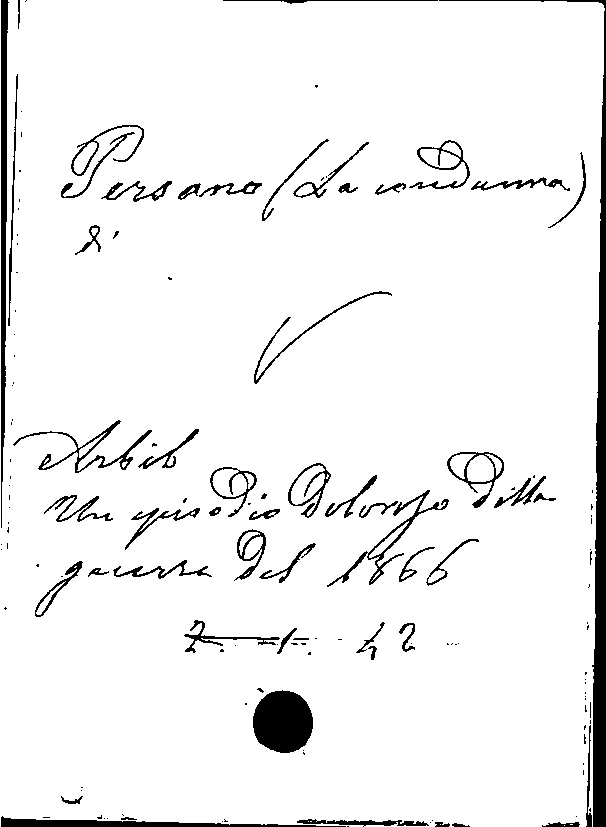 Persano (La condanna)
di
Arbib
Un episodio doloroso della
guerra del 1866
2. 1. 42